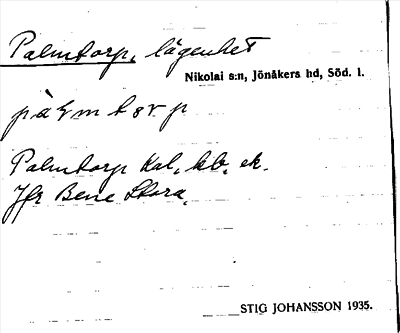 Palmtorp, lägenhet
Nikolai s:n, Jönåkers hd, Söd. l.
Palmtorp Kal, kb. ek.
Jfr Bene Stora.
STIG JOHANSSON 1935.